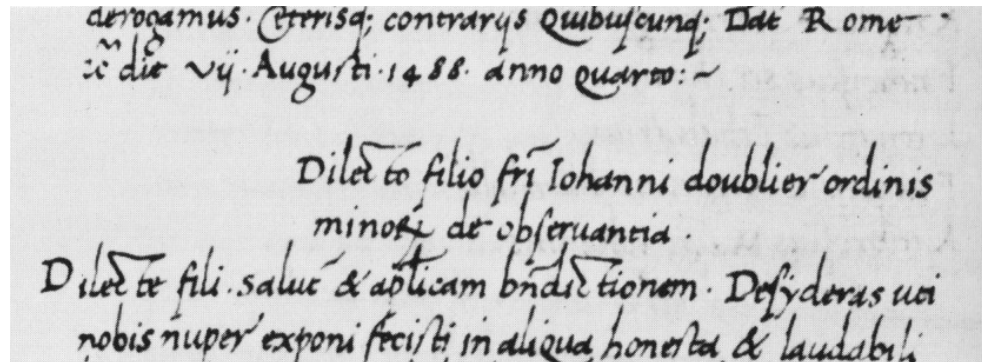 derogamus. Ceterisq; contrarijs Quibuscunq; Dat Rome
die vij. Augusti. 1488. anno quarto:~
Dilecto filio frī Iohanni doublier ordinis
minorꝝ de obseruantia.
Dilecte fili. salutē & apl̄icam bn̄dictionem. Desyderas uti
nobis nuper exponi fecisti in aliqua honesta & laudabili